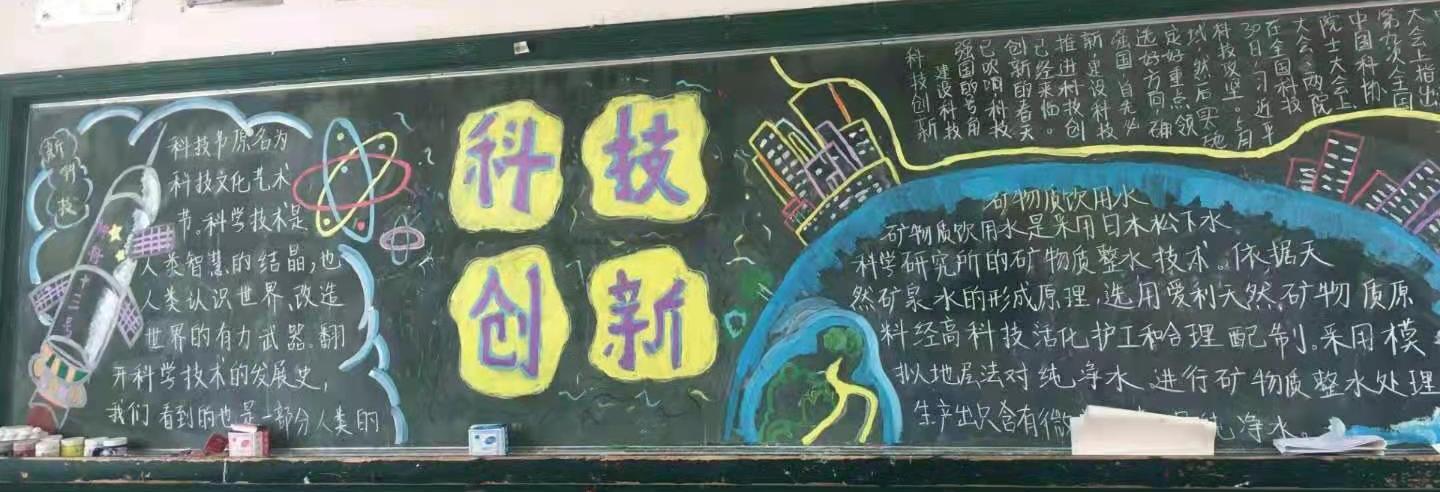 新科技
神舟
十三号
科技节原名为
科技文化艺术
节。科学技术是
人类智慧的结晶,也
人类认识世界、改造
世界的有力武器。翻
开科学技术的发展史,
我们看到的也是一部分人类的
科技
创新
科技创新
建设科技
强国的号角
已吹响,科技
创新的春天
已经来临。
推进科技创
新,建设科技
强国,首先必
选好方向,确
定好重点领
域,然后实地
科技攻坚。5月
30日,习近平
在全国科技
大会、两院
院士大会上
中国科协
第九次全国
大会上指出
矿物质饮用水
矿物质饮用水是采用日本松下水
科学研究所的矿物质整水技术。依据天
然矿泉水的形成原理,选用爱利天然矿物质原
料经高科技活化护工和合理配制。采用模
拟地层法对纯净水进行矿物质整水处理
生产出只含有微 纯净水。